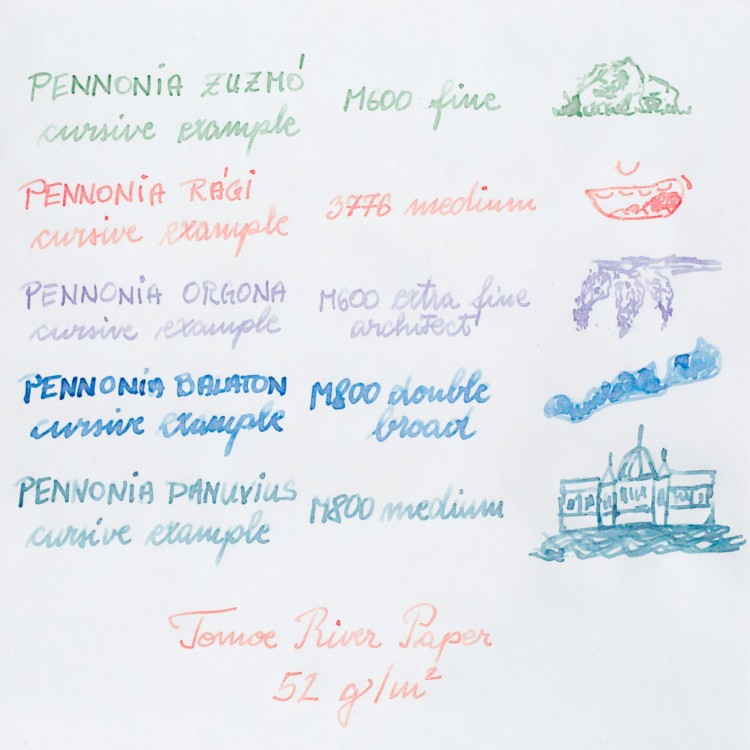 PENNONIA ZUZMÓ M600 fine
cursive example
PENNONIA RÁGI 3776 medium
cursive example
PENNONIA ORGONA M600 extra fine
cursive example architect
PENNONIA BALATON M800 double
cursive example broad
PENNONIA DANUVIUS M800 medium
cursive example
Tomoe River Paper
52 g/m²